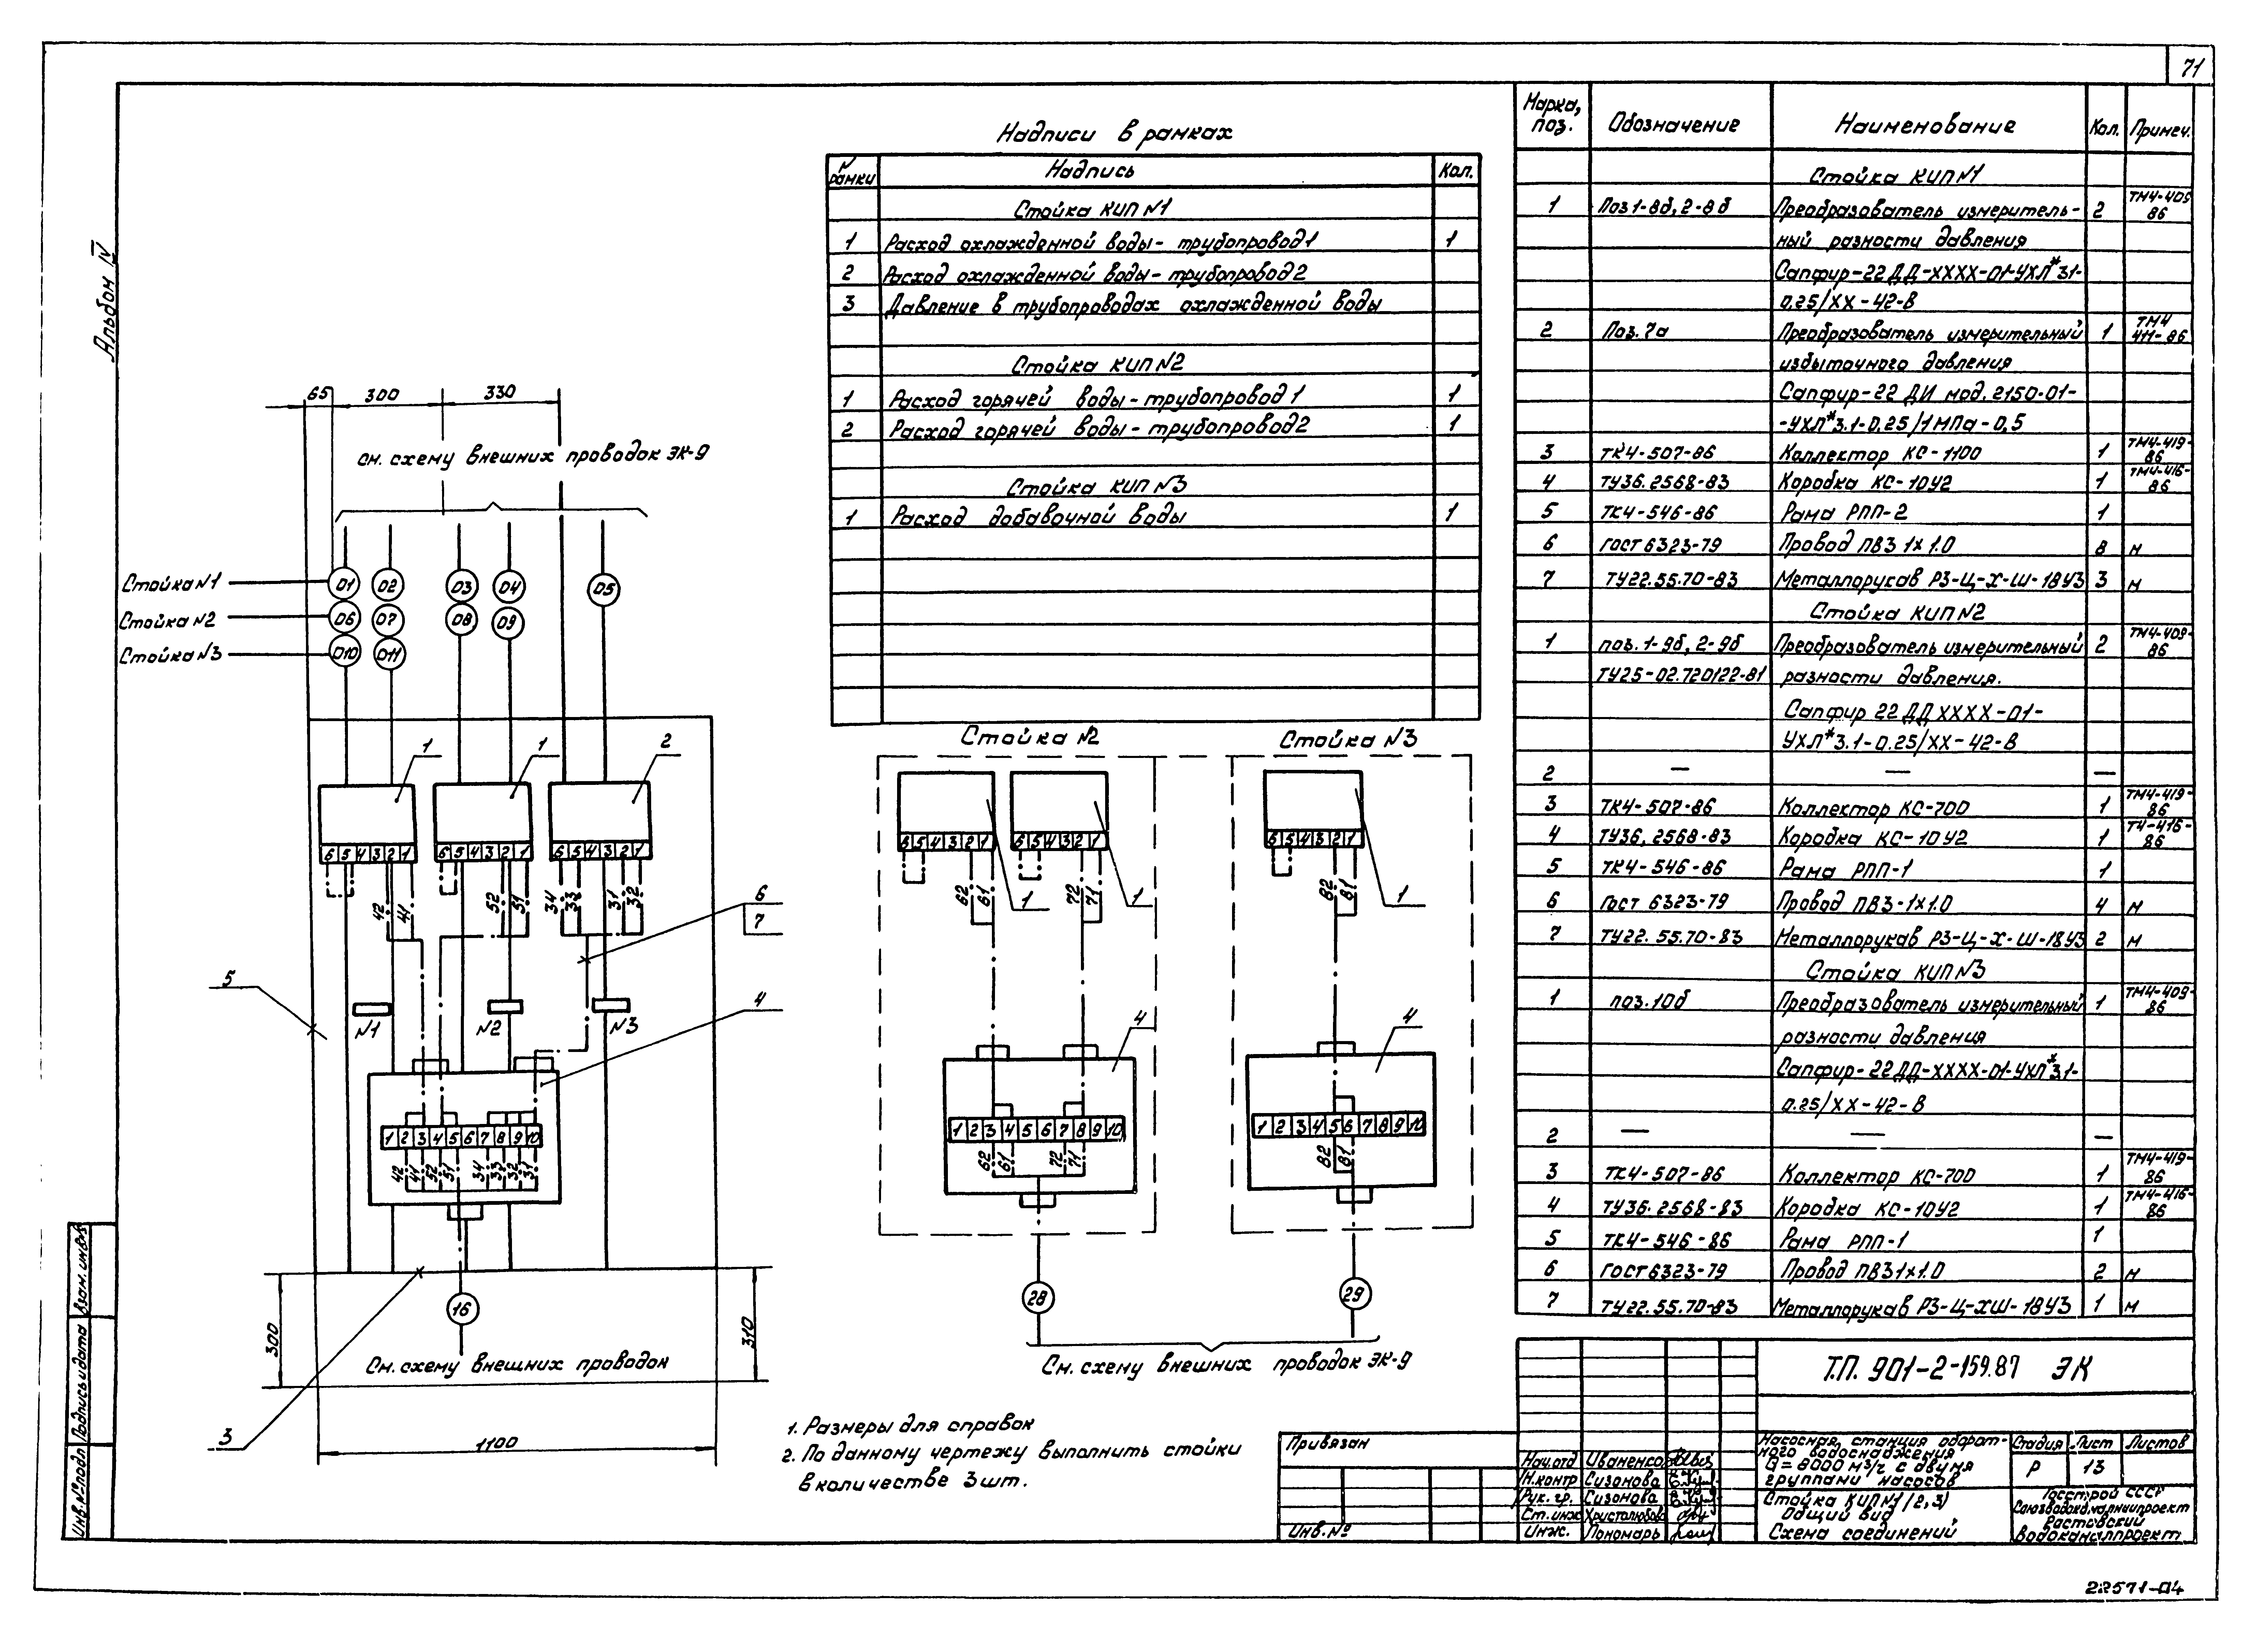 71
Альбом IV
Надписи в рамках
N рамки Надпись Кол.
Стойка КИП N1
1 Расход охлажденной воды - трубопровод 1 1
2 Расход охлажденной воды - трубопровод 2
3 Давление в трубопроводах охлажденной воды
Стойка КИП N2
1 Расход горячей воды - трубопровод 1 1
2 Расход горячей воды - трубопровод 2 1
Стойка КИП N3
1 Расход добавочной воды 1
65 300 330
см. схему внешних проводок ЭК-9
Стойка N1 01 02 03 04 05
Стойка N2 06 07 08 09
Стойка N3 010 011
1 1 2
6 5 4 3 2 1 6 5 4 3 2 1 6 5 4 3 2 1
42 41 52 51 34 33 31 32
6
7
5
4
N1 N2 N3
1 2 3 4 5 6 7 8 9 10
42 41 52 51 34 33 32 31
16
300 310
См. схему внешних проводок
3
1100
Стойка N2 Стойка N3
6 5 4 3 2 1 6 5 4 3 2 1 6 5 4 3 2 1
62 61 72 71 82 81
1 1 1
4 4
1 2 3 4 5 6 7 8 9 10 1 2 3 4 5 6 7 8 9 10
62 61 72 71 82 81
28 29
См. схему внешних проводок ЭК-9
1. Размеры для справок
2. По данному чертежу выполнить стойки
в количестве 3 шт.
Марка, поз. Обозначение Наименование Кол. Примеч.
Стойка КИП N1
1 Поз 1-8б, 2-8б Преобразователь измеритель- 2 ТМ4-409-86
ный разности давления
Сапфир-22 ДД-ХХХХ-01-УХЛ*3.1-
0.25/ХХ-42-В
2 Поз. 7а Преобразователь измерительный 1 ТМ4 411-86
избыточного давления
Сапфир-22 ДИ мод. 2150-01-
-УХЛ*3.1-0,25/1МПа-0,5
3 ТК4-507-86 Коллектор КС-1100 1 ТМ4-419-86
4 ТУ36.2568-83 Коробка КС-10У2 1 ТМ4-416-86
5 ТК4-546-86 Рама РПП-2 1
6 Гост 6323-79 Провод ПВ3 1х1.0 8 м
7 ТУ22.55.70-83 Металлорукав РЗ-Ц-Х-Ш-18У3 3 м
Стойка КИП N2
1 поз. 1-9б, 2-9б Преобразователь измерительный 2 ТМ4-409-86
ТУ25-02.720122-81 разности давления.
Сапфир 22 ДД ХХХХ-01-
УХЛ*3.1-0.25/ХХ-42-В
2 — — —
3 ТК4-507-86 Коллектор КС-700 1 ТМ4-419-86
4 ТУ36,2568-83 Коробка КС-10У2 1 Т4-416-86
5 ТК4-546-86 Рама РПП-1 1
6 Гост 6323-79 Провод ПВ3-1х1.0 4 м
7 ТУ22.55.70-83 Металлорукав РЗ-Ц-Х-Ш-18У3 2 м
Стойка КИП N3
1 поз. 10б Преобразователь измерительный 1 ТМ4-409-86
разности давления
Сапфир-22 ДД-ХХХХ-01-УХЛ*3.1-
0.25/ХХ-42-В
2 — — —
3 ТК4-507-86 Коллектор КС-700 1 ТМ4-419-86
4 ТУ36.2568-83 Коробка КС-10У2 1 ТМ4-416-86
5 ТК4-546-86 Рама РПП-1 1
6 Гост 6323-79 Провод ПВ3 1х1.0 2 м
7 ТУ22.55.70-83 Металлорукав РЗ-Ц-ХШ-18У3 1 м
Т.П. 901-2-159.87 ЭК
Привязан
Инв. №
Нач.отд Иваненко
Н.контр Сизонова
Рук. гр. Сизонова
Ст. инж Христолюбова
Инж. Пономарь
Насосная станция оборот-
ного водоснабжения
Q=8000 м³/ч с двумя
группами насосов
Стадия Лист Листов
Р 13
Стойка КИП N1 (2,3)
Общий вид
Схема соединений
Госстрой СССР
Союзводоканалниипроект
Ростовский
Водоканалпроект
Инв. № подл Подпись и дата Взам. инв. №
22571-04